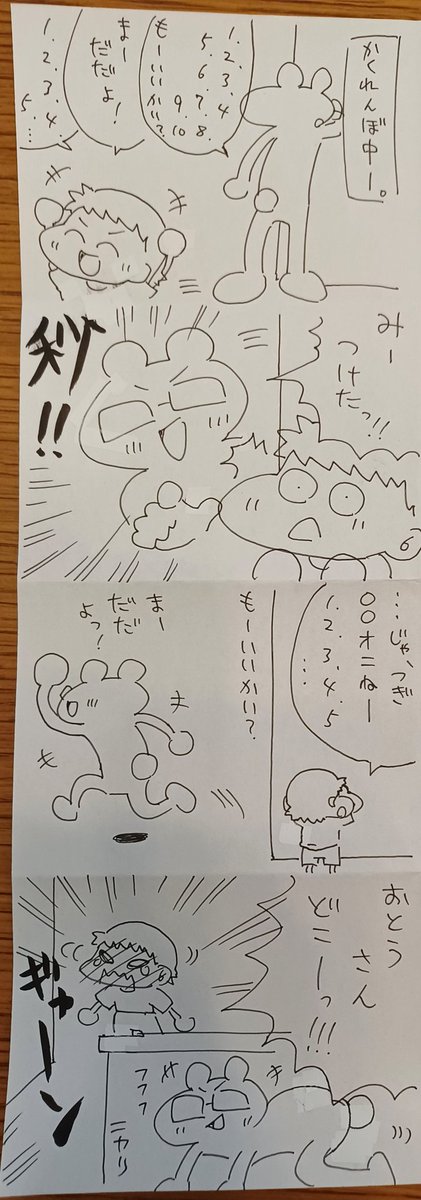 かくれんぼ中ー。
1.2.3.4
5.6.7.8.
9.10
もーいいかい?
まー
だだよ!
1.2.3.4.
5.…
みー
つけたっ!!
秒!!
…じゃ、つぎ
〇〇オニねー
1.2.3.4.5
…
もーいいかい?
まー
だだ
よっ!
おとう
さん
どこーっ!!!
ギャーン
フフフ
ニヤリ